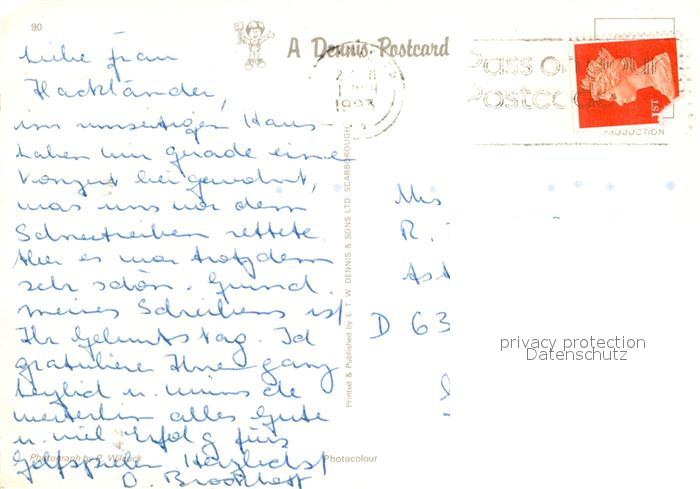 90
A Dennis Postcard
Liebe Frau
Hackländer,
im umseitigen Haus
haben wir gerade einem
Konzert beigewohnt,
was uns vor dem
Schneetreiben rettete.
Aber es war trotzdem
sehr schön. Grund
meines Schreibens ist
Ihr Geburtstag. Ich
gratuliere Ihnen ganz
herzlich u. wünsche
weiterhin alles Gute
u. viel Erfolg fürs
Golfspielen Herzlichst
Photograph by
Photocolour
Printed & Published by E. T. W. DENNIS & SONS LTD. SCARBOROUGH
1993
Pass on
Postcode
1ST
PRODUCTION
Mrs
R.
D 63
privacy protection
Datenschutz